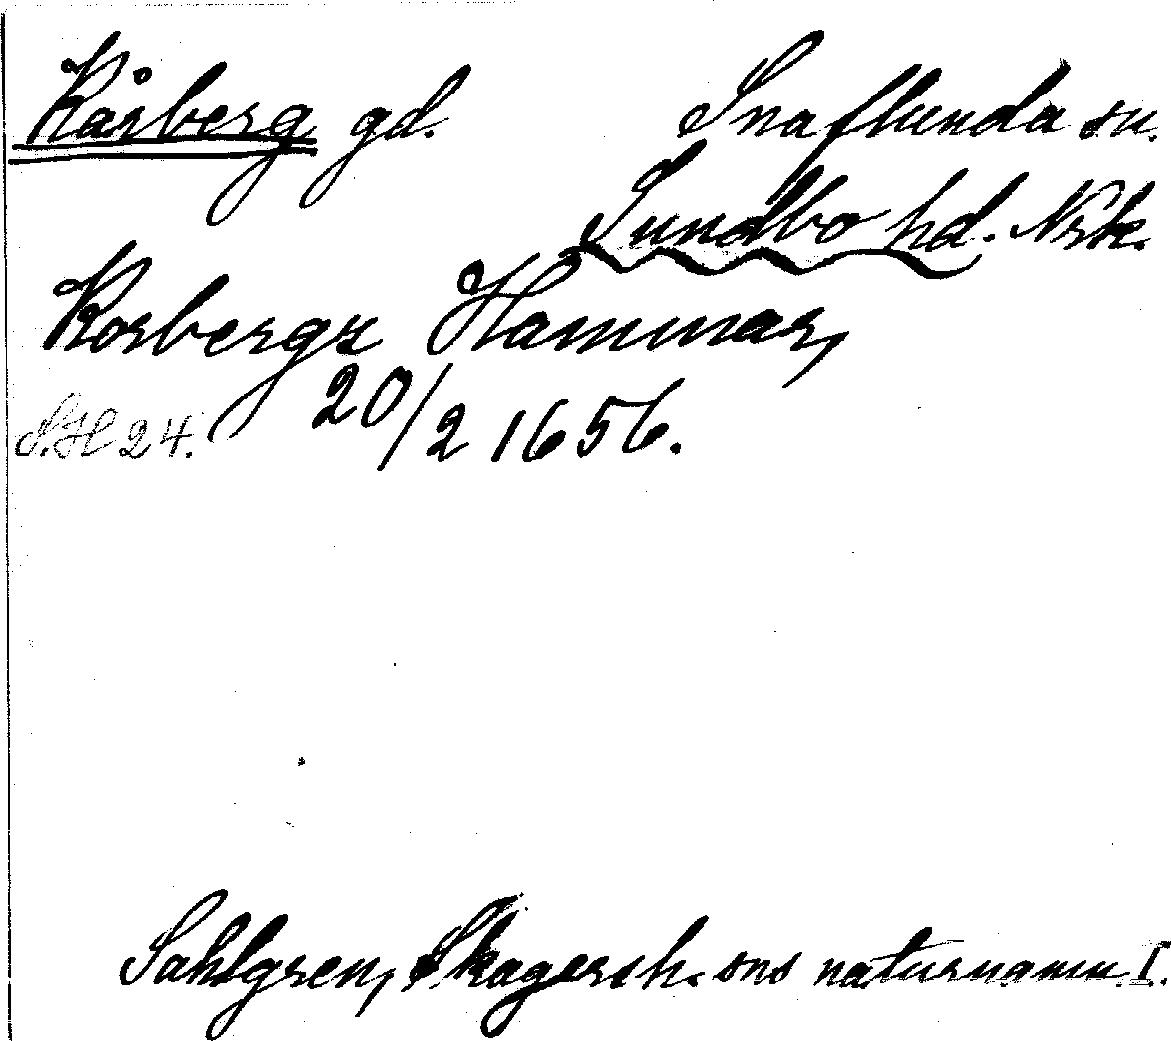 Kårberg gd. Snaflunda sn.
Sundbo hd. Nrk.
Korbergz Hammar,
20/2 1656.
S.H 24.
Sahlgren, Skagersh. sns naturnamn I.